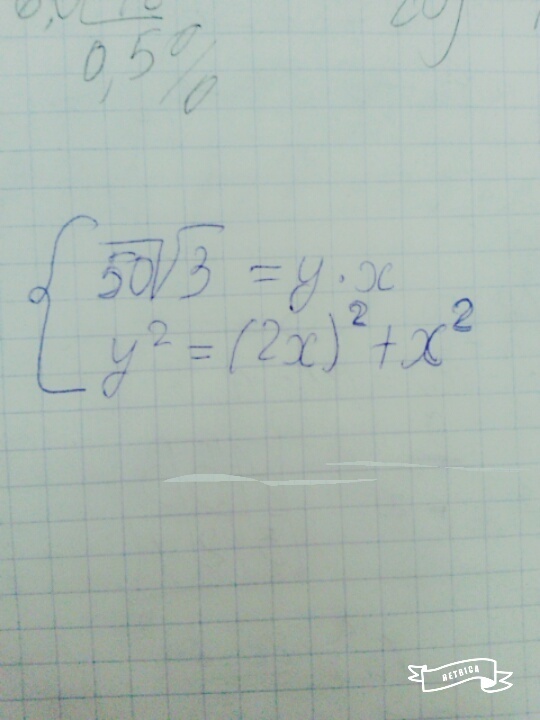 0,5%
50√3 = y · x
y² = (2x)² + x²
RETRICA